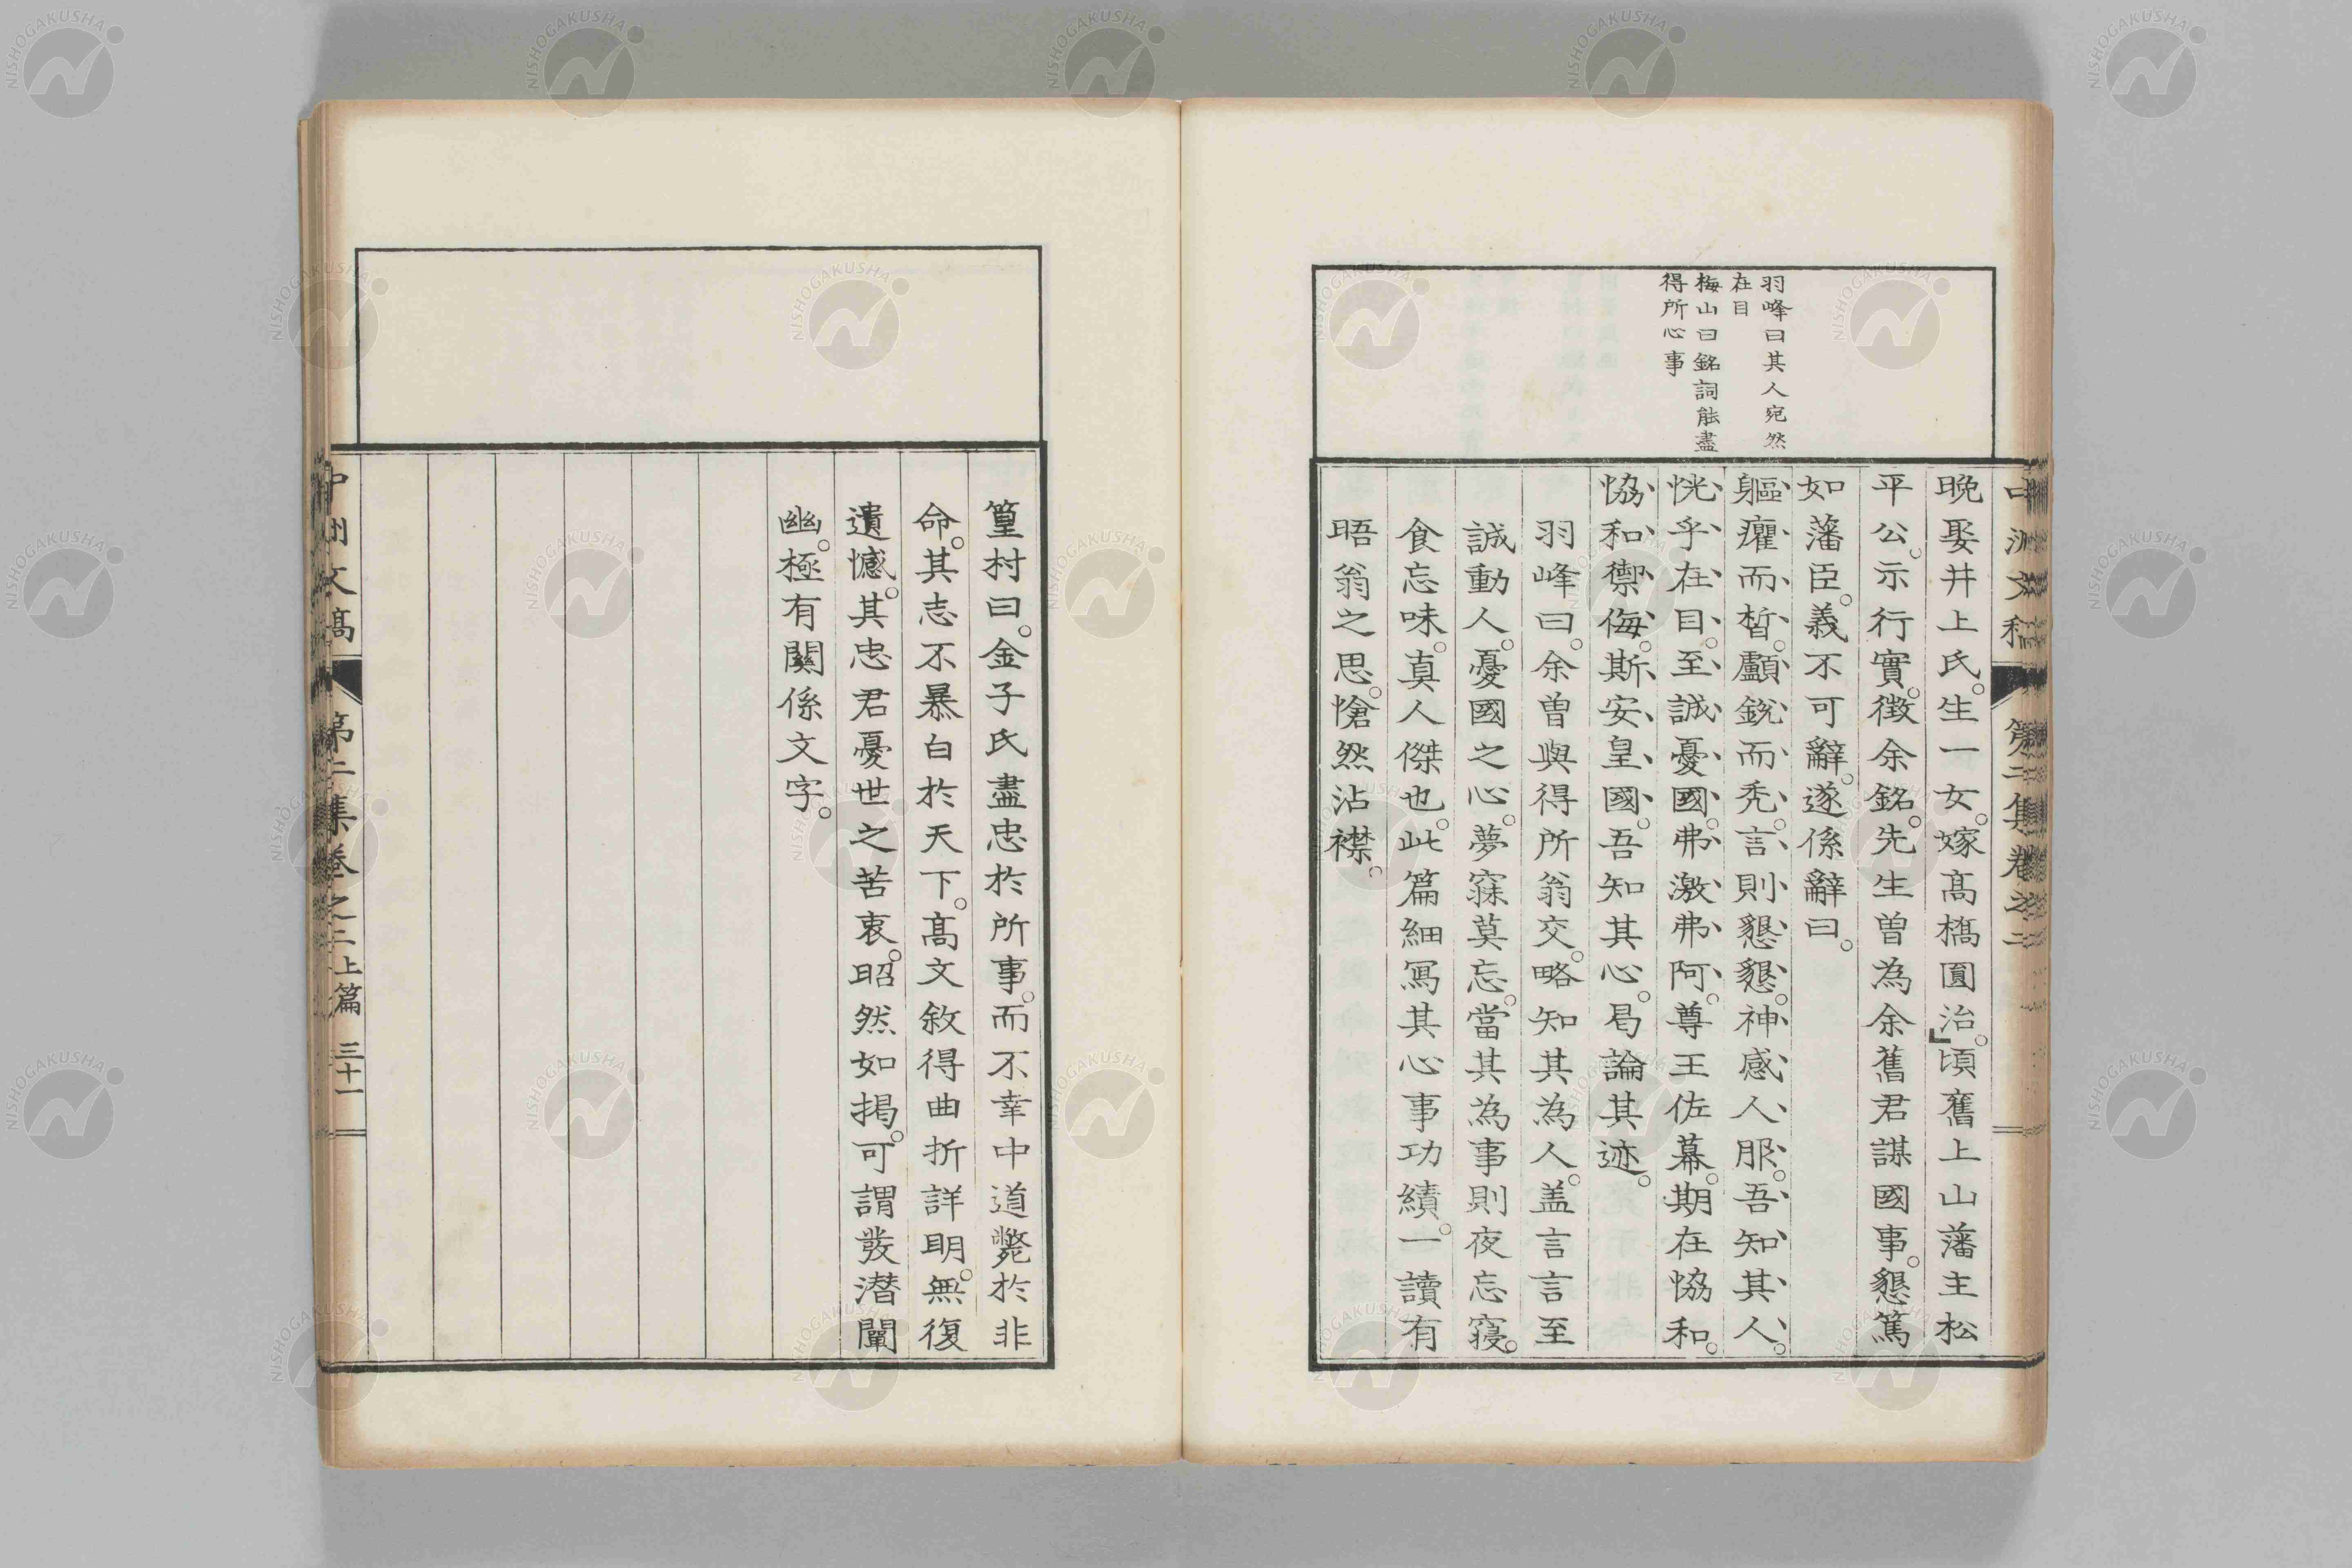 羽峰曰其人宛然
在目
梅山曰銘詞能盡
得所心事
晩娶井上氏。生一女。嫁髙橋圓治。頃舊上山藩主松
平公。示行實。徴余銘。先生曽為余舊君謀國事。懇篤
如藩臣。義不可辭。遂係辭曰。
軀癯而晳。顱銳而禿。言則懇懇。神感人服。吾知其人。
恍乎在目。至誠憂國。弗激弗阿。尊王佐幕。期在恊和。
恊和禦侮。斯安皇國。吾知其心。曷論其迹。
羽峰曰。余曽與得所翁交。略知其為人。盖言言至
誠動人。憂國之心。夢寐莫忘。當其為事則夜忘寢。
食忘味。真人傑也。此篇細冩其心事功績。一讀有
晤翁之思。愴然沾襟。
篁村曰。金子氏盡忠於所事。而不幸中道斃於非
命。其志不暴白於天下。髙文敘得曲折詳明。無復
遺憾。其忠君憂世之苦衷。昭然如掲。可謂發潜闡
幽。極有關係文字。
中洲文稿 第二集卷之二上篇 三十一
NISHOGAKUSHA